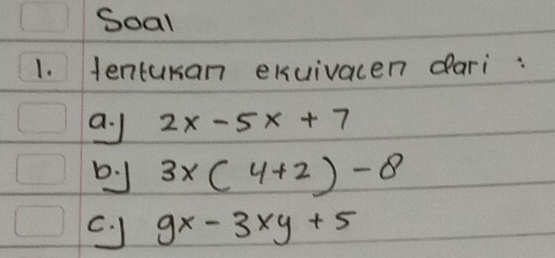 Soal
1. tentukan ekuivalen dari :
a.) 2x - 5x + 7
b.) 3x ( 4+2 ) - 8
c.) 9x - 3xy + 5